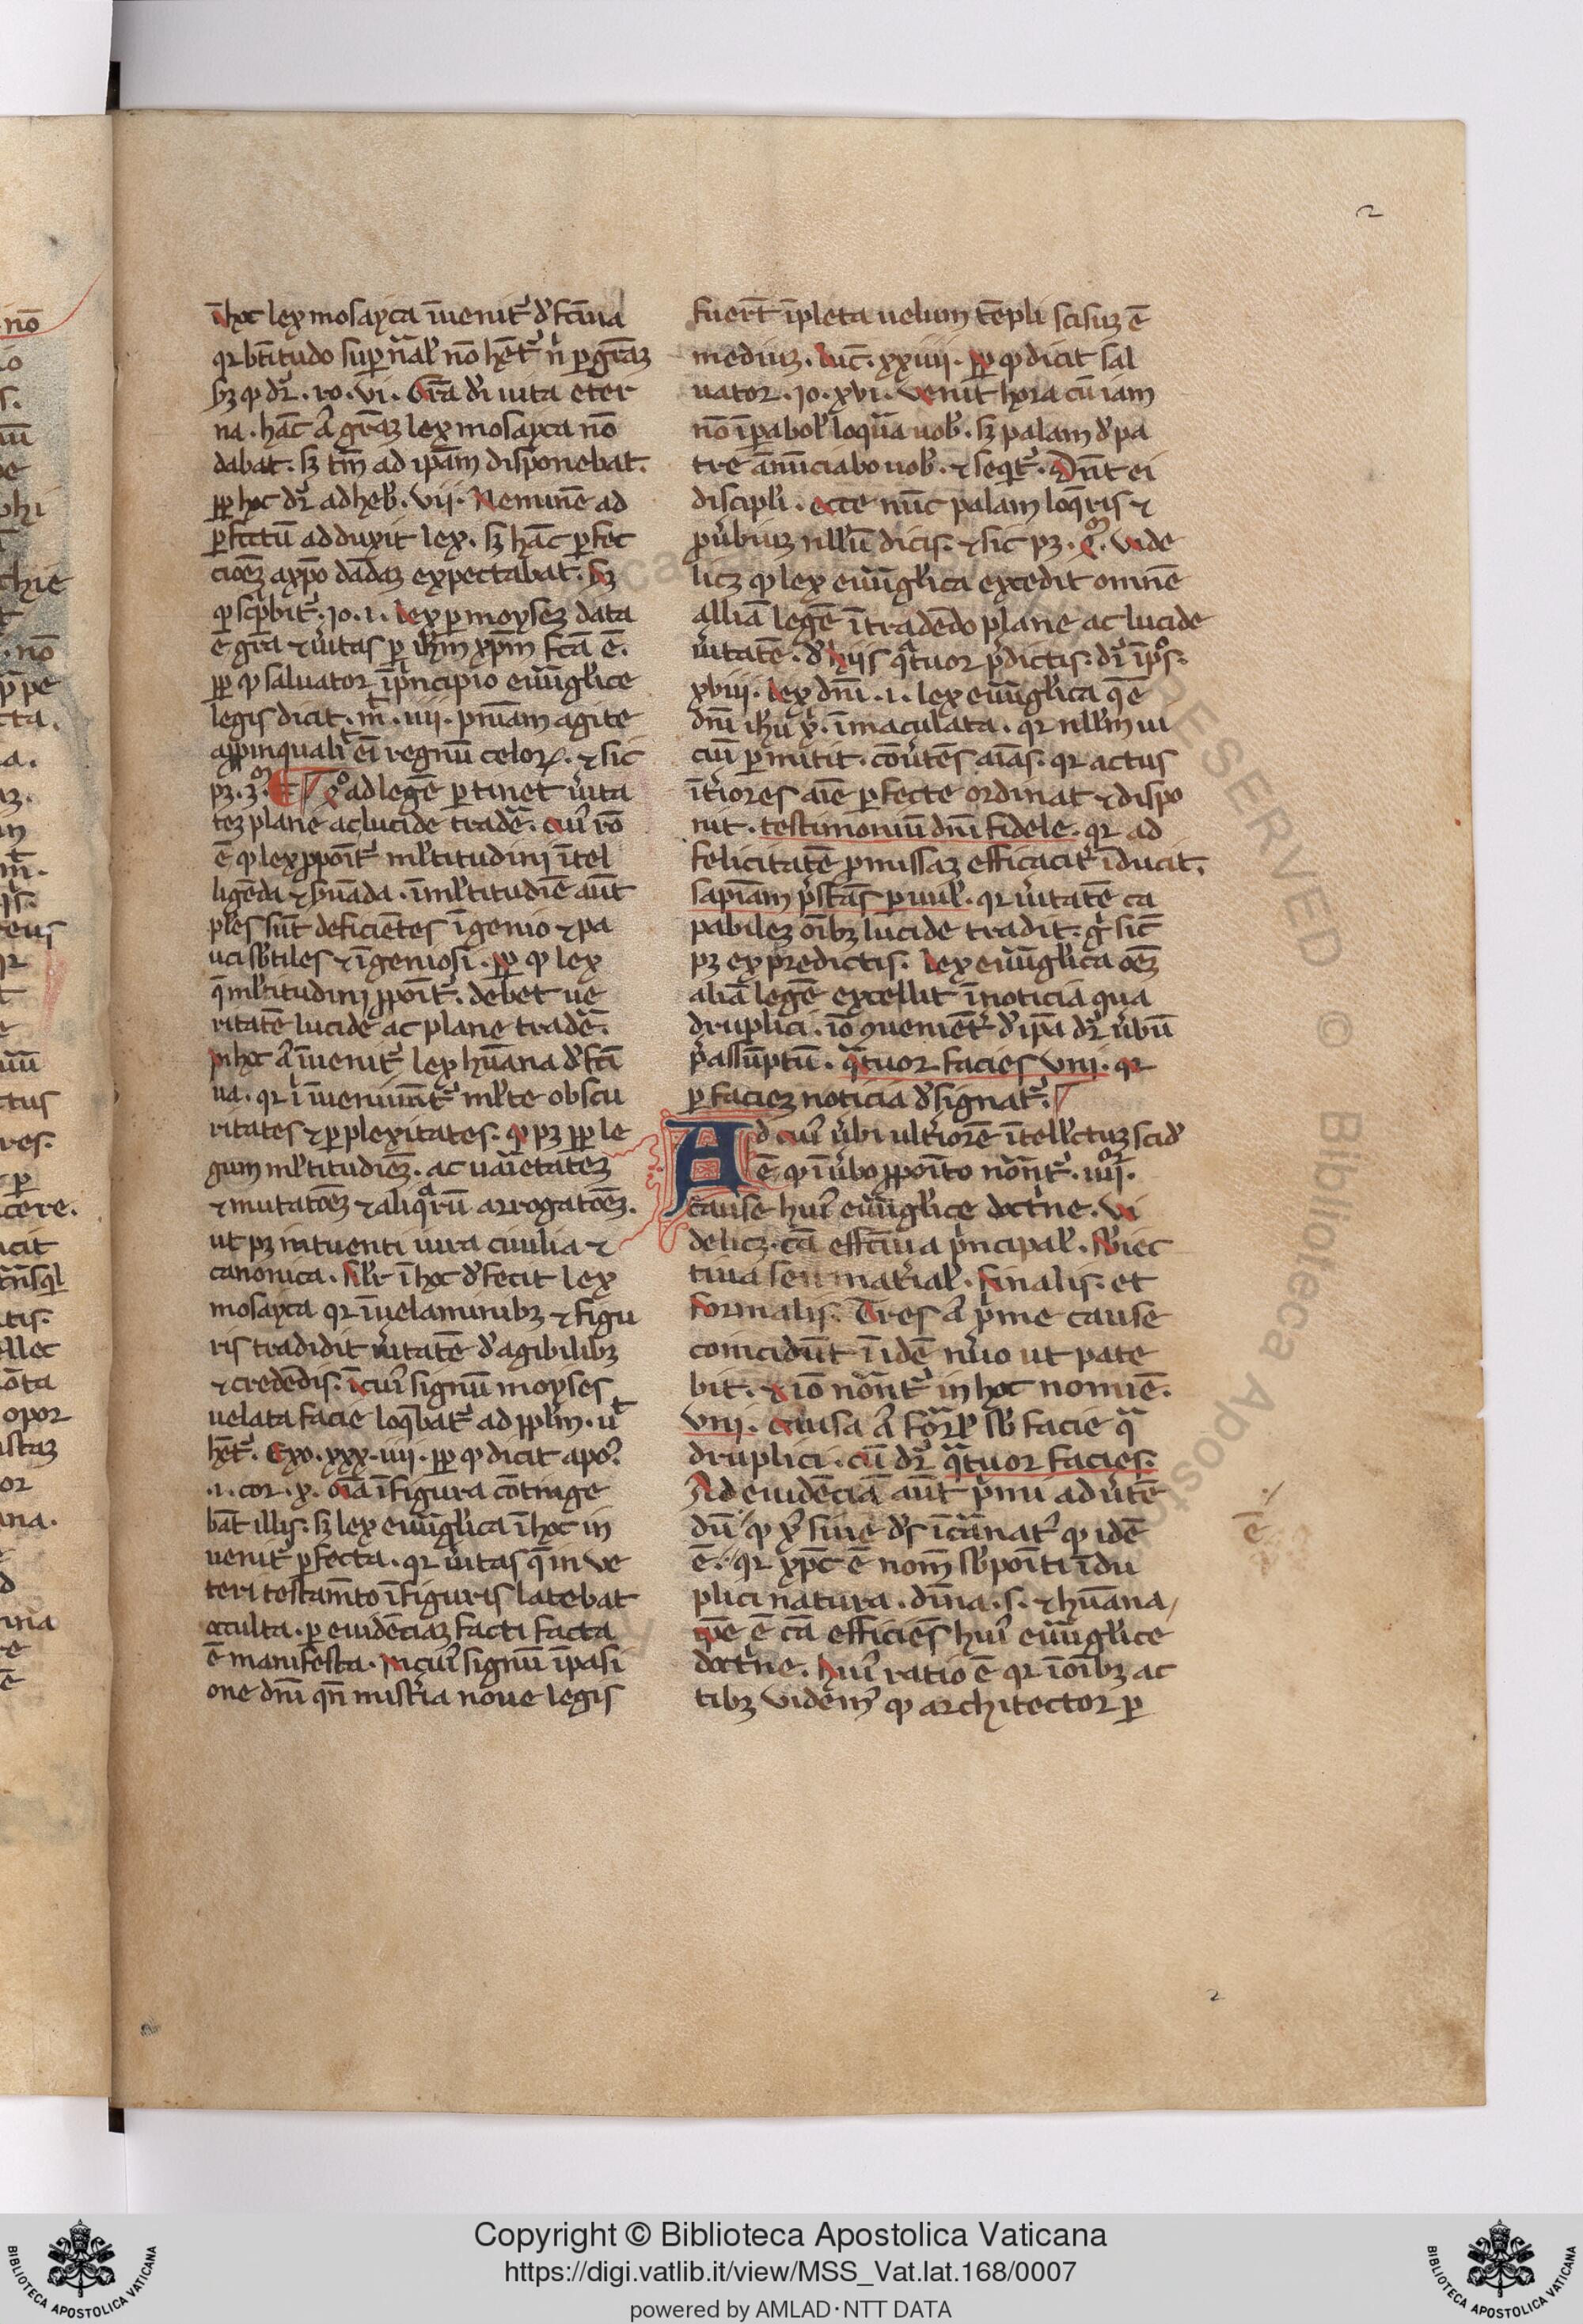 2
ī hoc lex mosayca īuenit᷑ d̓fc̄iua
qꝛ bt̄itudo suꝑn̄al̓ nō hēt᷑ n̓ ꝑ gr̄aꝫ
sꝫ ꝙ dr̄. ro. vi. Gr̄a dī uita eter
na. hāc ā gr̄aꝫ lex mosayca nō
dabat. sꝫ tm̄ ad ip̄am disponebat.
ꝓꝑ hoc dr̄ ad heb̓. vii. Neminē ad
ꝑfc̄tū adduxit lex. sꝫ hāc ꝑfec
cioēꝫ a xp̄o dādaꝫ expectabat. sꝫ
ꝙ sc̓bit᷑. io. i. lex ꝑ moyseꝫ data
ē gr̄a ⁊ ūitas ꝑ ih̄m xp̄m fc̄a ē.
ꝓꝑ ꝙ saluator ī pͥncipio euāgl̓ice
legis dicit. mͭ. iiii. pn̄iam agite
aꝓpinquali̇ͭ eī regnū celoꝝ. ⁊ sic
pꝫ. 3ᵐ. ¶ qͦ ad legē ꝑtinet ūita
teꝫ plane ac lucide tradē. cuiꝰ rō
ē ꝙ lex ꝓpoīt᷑ ml̓titudini ītel
ligēda ⁊ ẜuāda. ī ml̓titudīe aūt
pl̓es sūt deficiētes īgenio ⁊ pa
uci sb̓tiles ⁊ īgeniosi. ꝓꝑ ꝙ lex
q̄ ml̓titudini ꝓpoīt᷑. debet ue
ritatē lucide ac plane tradē.
In hoc ā īuenit᷑ lex hūana d̓fc̄i
ua. qꝛ ī īueniūnt᷑ ml̓te obscu
ritates ⁊ ꝑplexitates. ꝙ pꝫ ꝓꝑ le
gum ml̓titudīeꝫ. ac uaīetateꝫ
⁊ mutatōeꝫ ⁊ aliqͣrū arrogatōeꝫ.
ut pꝫ intuenti iura ciuilia ⁊
canonica. Sil̓r ī hoc d̓fecit lex
mosayca qꝛ ī uelaminibꝫ ⁊ figu
ris tradidit ūitatē d̓ agibilibꝫ
⁊ credēdis. ī cuiꝰ signū moyses
uelata facie loq̄bat᷑ ad ppl̓m. uͭ
hēt᷑. Exo. xxx.iiii. ꝓꝑ ꝙ dicit apoꝰ.
.i. cor. x. oīa ī figura cōtinge
bāt illis. sꝫ lex euāgl̓ica ī hoc in
uenit᷑ ꝑfecta. qꝛ ūitas q̄ in ve
teri testam̄to ī figuris latebat
occulta. ꝑ euidēciaꝫ facti facta
ē manifesta. In cuiꝰ signū ī pasi
one dn̄i qn̄ mist̓ia noue legis
fuer̄t īpleta uelum tēpli scisuꝫ ē
mediuꝫ. luc̄. xxiiii. ꝓꝑ ꝙ dicit sal
uator. io. xvi. venit hora cū iam
nō ī ꝑabol̓ loquar̄ uob̓. sꝫ palam d̓ pa
tre ānūciabo uob̓. ⁊ seq̄t᷑. Dn̄t ei
discipl̓i. ecce nūc palam loq̄ris ⁊
ꝓūbiuꝫ nll̓ū dicis. ⁊ sic pꝫ. 4ᵐ. vide
licꝫ ꝙ lex euāgl̓ica excedit omnē
alliā legē ī tradēdo plane ac lucide
ūitatē. d̓ hiis qͣtuor p̓dictis. dr̄ ī pͦs.
xviii. lex dn̄i .i. lex euāgl̓ica q̄ ē
dn̄i ih̄u x̓. īmaculata. qꝛ nll̓m ui
ciū ꝑmitit. cōūtēs aīas. qꝛ actus
īt̓iores aīe ꝑfecte ordinat ⁊ dispo
nit. testimoniū dn̄i fidele. qꝛ ad
felicitatē ꝓmissaꝫ efficacit᷑ īducit.
sapīam p̓stās ꝑuul̓. qꝛ ūitatē ca
pabileꝫ oībꝫ lucide tradit. gͦ sic̄
pꝫ ex predictis. lex euāgl̓ica oēꝫ
aliā legē excellit ī noticia qua
druplici. iō ꝯueniēt᷑ d̓ ip̄a dr̄ ūbū
p̓assūptū. qͣtuor facies vni. qꝛ
ꝑ facieꝫ noticia d̓signat᷑.
Ad cuiꝰ ūbi ult̓iorē ītell̓ctuꝫ sciē̄d̓
ē ꝙ ī ūbo ꝓpoīto nōant᷑. iiiiᵒʳ.
cause huiꝰ euāgl̓ice doct̓ne. vi
delicꝫ. cā effc̄iua p̓ncipal̓. sb̓iec
tiua seu mat̓ial̓. finalis. et
formalis. Tres ā p̓me cause
coincidūt ī idē nūo ut pate
bit. ⁊ iō nōant᷑ in hoc nomīe.
vni. causa ā forāl̓ sb̓ facie qͣ
druplici. cū dr̄ qͣtuor facies.
Ad euidēciā aūt p̓mi adut̄ē
dū ꝙ x̓ siue d̓s īcānatꝰ ꝙ idē
ē. qꝛ xp̄c ē nom̄ sb̓poīti ī du
plici natura. diūna .s. ⁊ hūana
ip̄e ē cā efficiēs huiꝰ euāgl̓ice
doct̓ne. huiꝰ ratio ē qꝛ ī oībꝫ ac
tibꝫ videmꝰ ꝙ architector ꝑ
ē
2
Copyright © Biblioteca Apostolica Vaticana
https://digi.vatlib.it/view/MSS_Vat.lat.168/0007
powered by AMLAD·NTT DATA
BIBLIOTECA APOSTOLICA VATICANA
BIBLIOTECA APOSTOLICA VATICANA